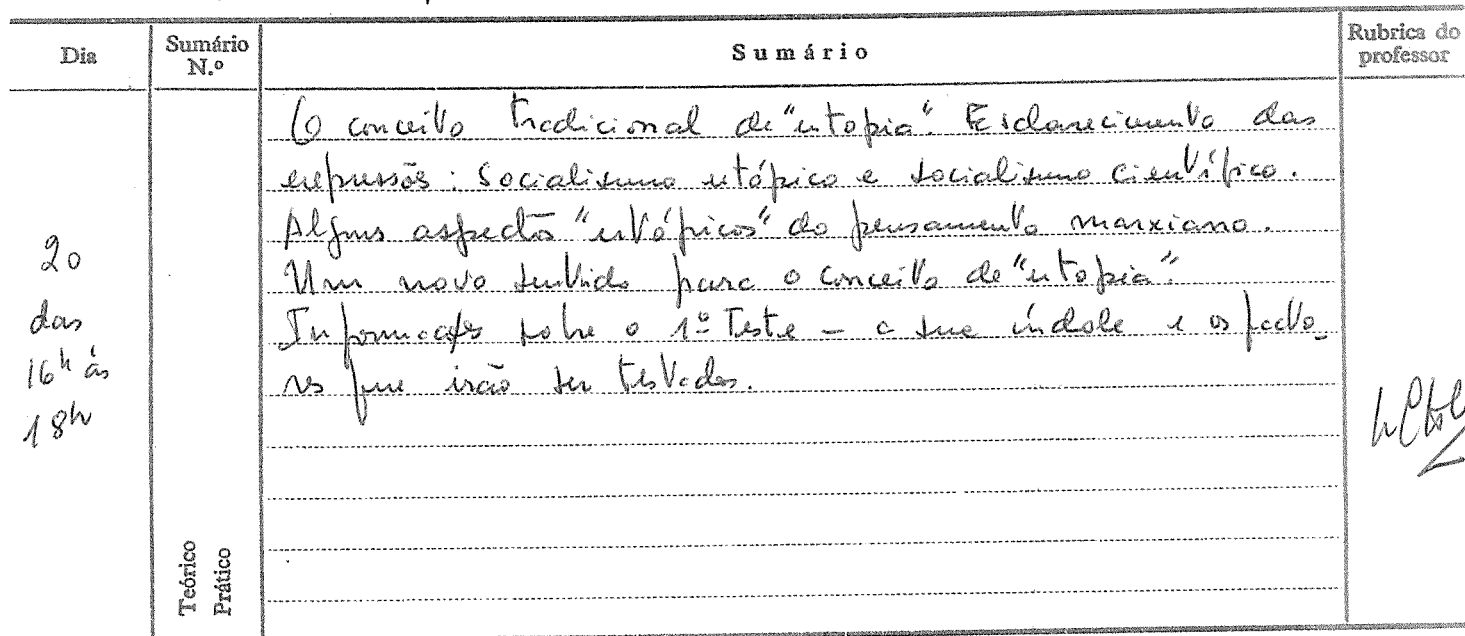 Dia
Sumário N.º
Sumário
Rubrica do professor
O conceito tradicional de "utopia". Esclarecimento das
expressões: Socialismo utópico e socialismo científico.
Alguns aspectos "utópicos" do pensamento marxiano.
Um novo sentido para o conceito de "utopia".
Informações sobre o 1º Teste – a sua índole e os facto-
res que irão ser testados.
20
das
16h às
18h
Teórico
Prático